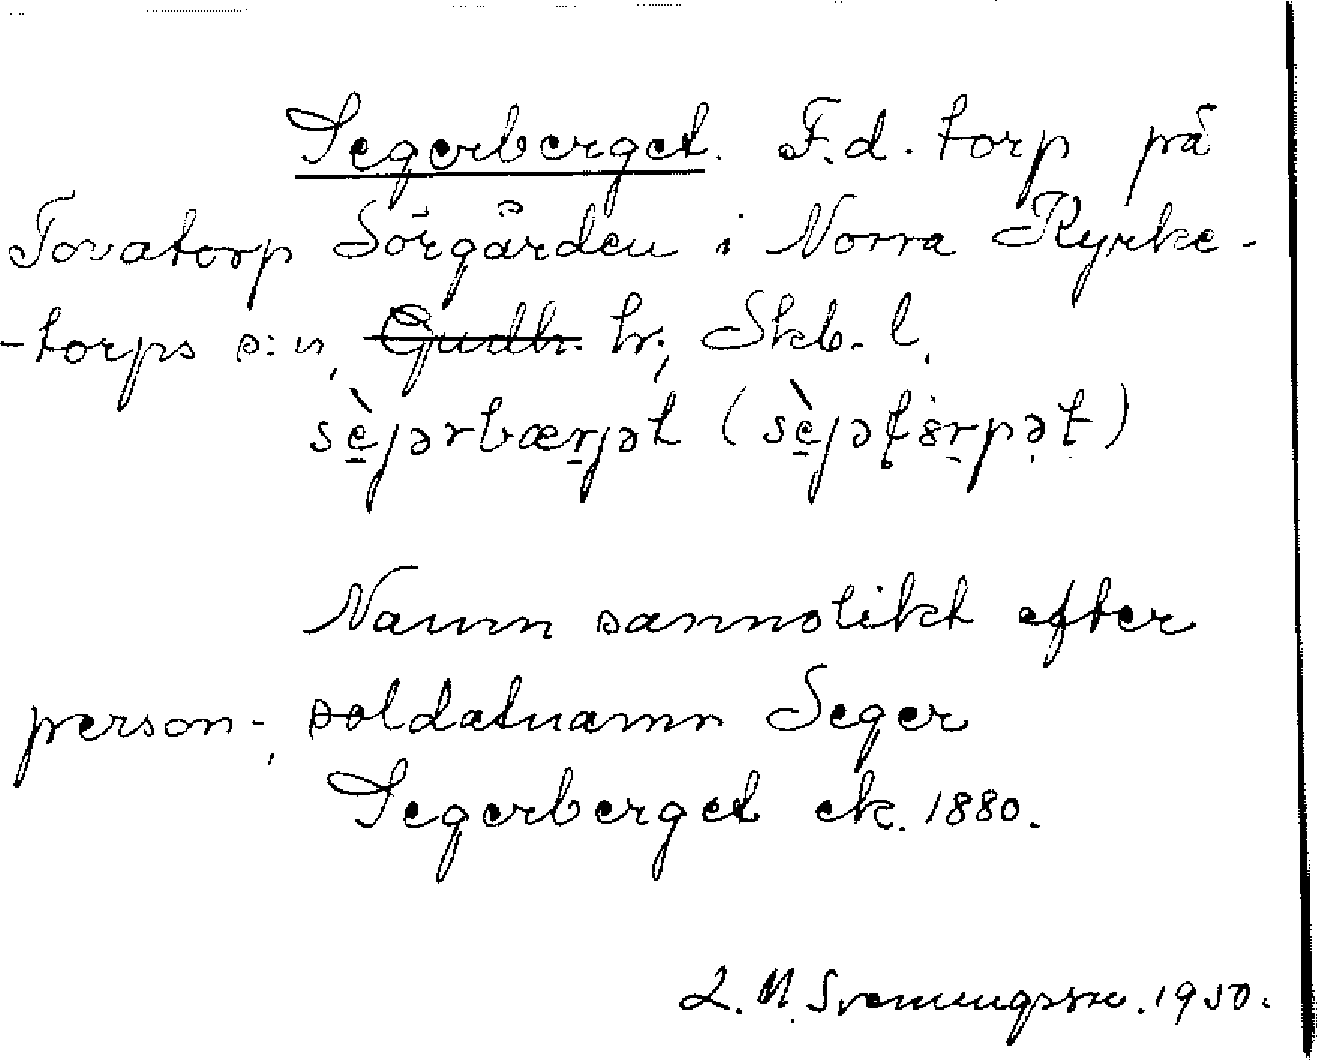 Segerberget. F.d. torp på
Tovatorp Sörgården i Norra Kyrke-
-torps s:n, Gudh. hr, Skb. l.
sè̱jərbær̠jət (sè̱jət̠ɵr̠pət̠)
Namn sannolikt efter
person-, soldatnamn Seger
Segerberget ek. 1880.
L. M. Svenungsson. 1950.